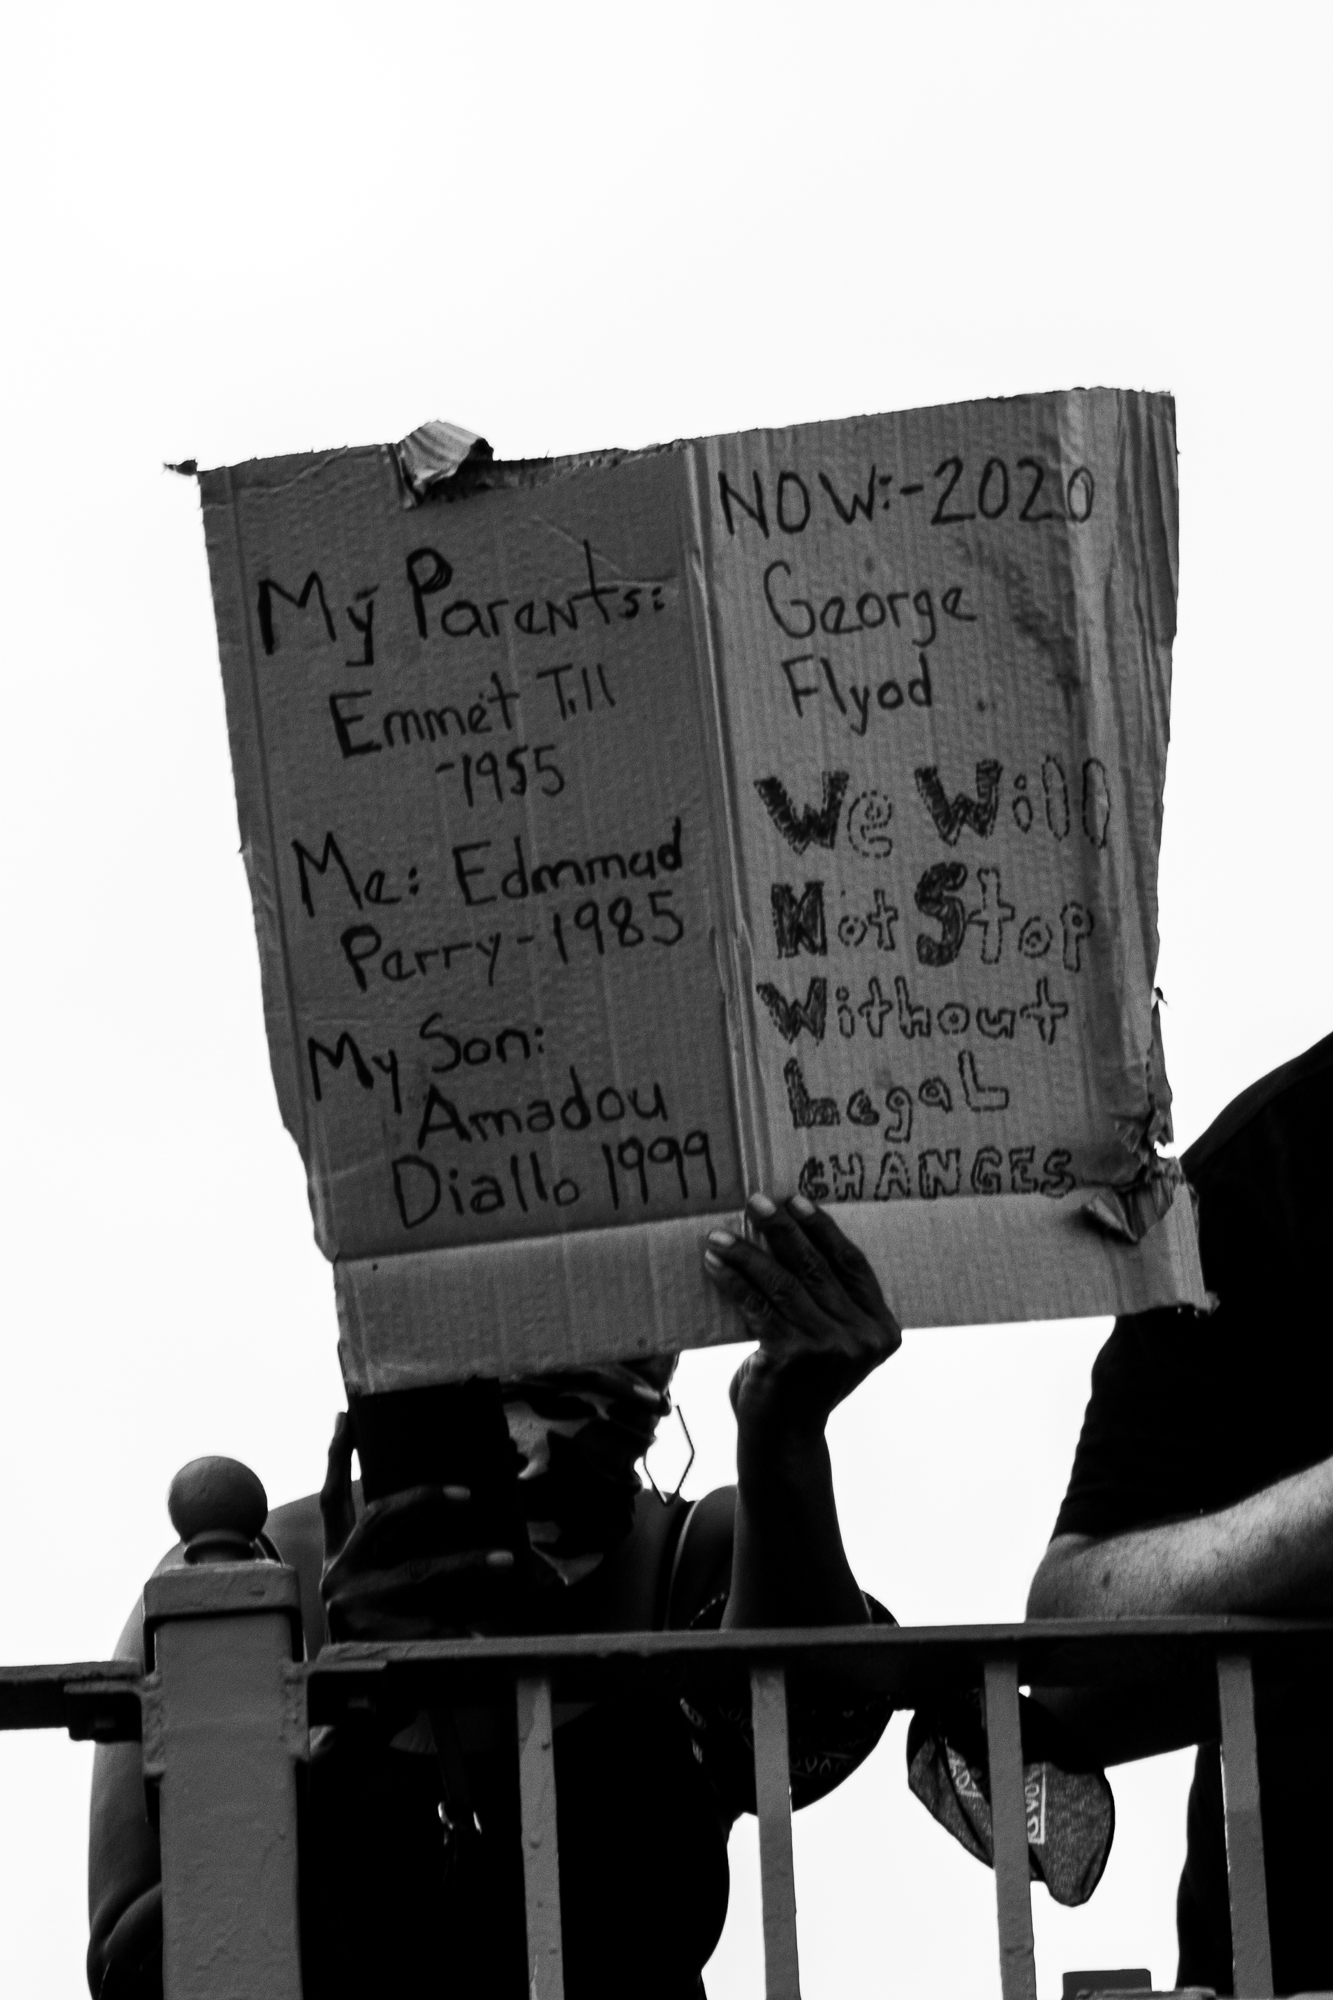 My Parents:
Emmet Till
-1955
Me: Edmmud
Perry-1985
My Son:
Amadou
Diallo 1999
NOW:-2020
George
Flyod
We Will
Not Stop
Without
Legal
CHANGES